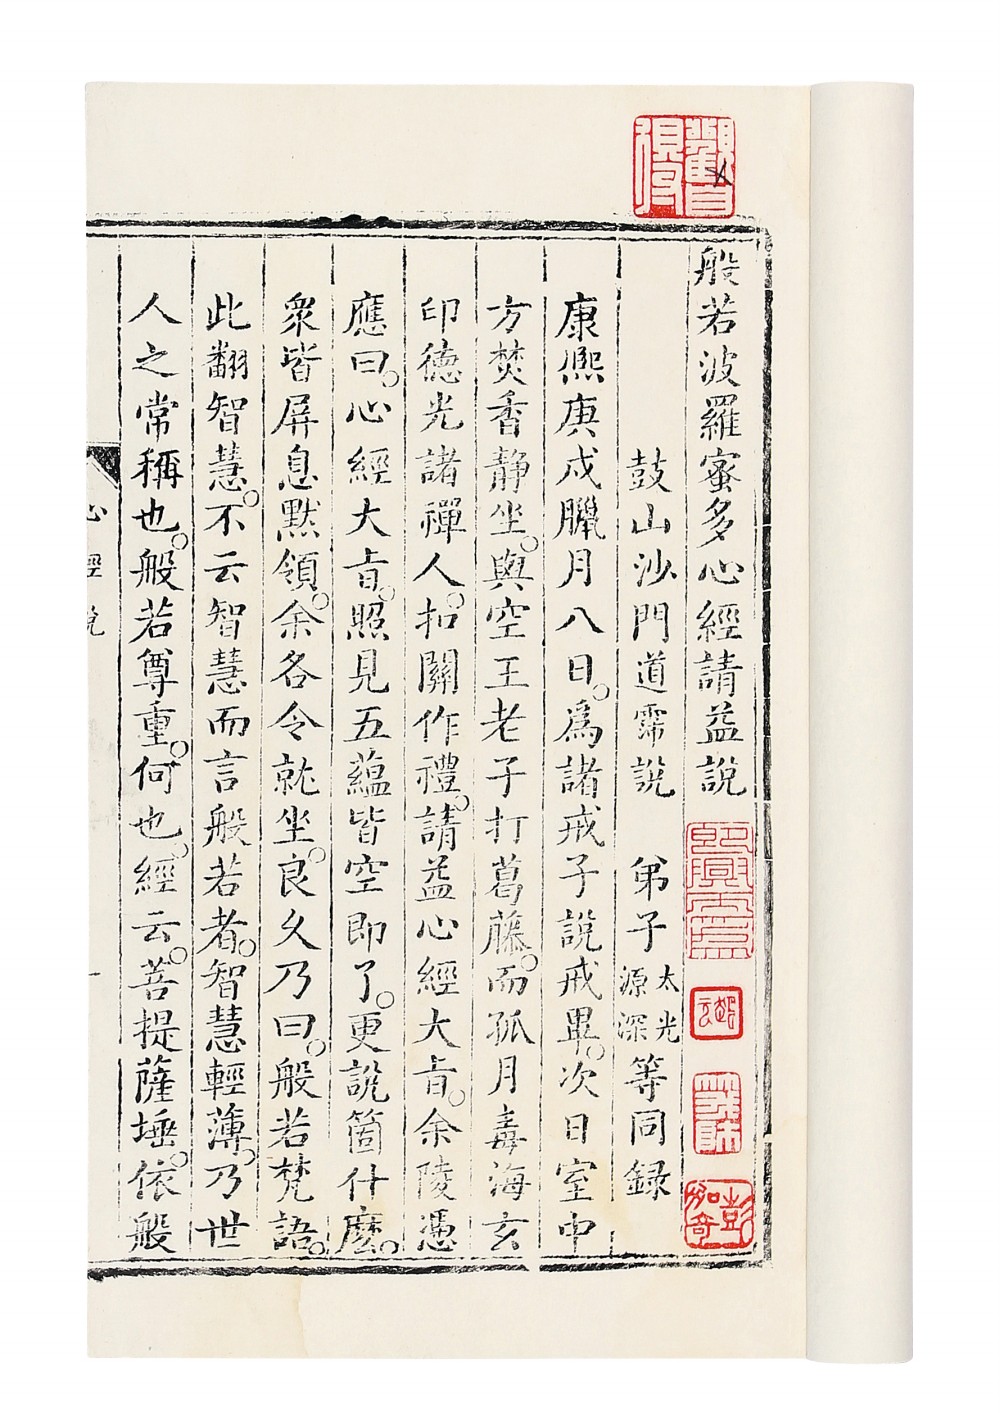 般若波羅蜜多心經請益說
鼓山沙門道霈說 弟子太光源深等同録
康熈庚戌臘月八日。爲諸戒子說戒畢。次日室中
方焚香静坐。與空王老子打葛藤。而孤月壽海玄
印德光諸禪人。扣關作禮。請益心經大㫖。余陵憑
應曰。心經大㫖。照見五蘊皆空即了。更說箇什麽。
衆皆屏息黙領。余各令就坐。良久乃曰。般若梵語。
此翻智慧。不云智慧而言般若者。智慧輕薄。乃世
人之常稱也。般若尊重。何也。經云。菩提薩埵。依般
心經說
一
彭